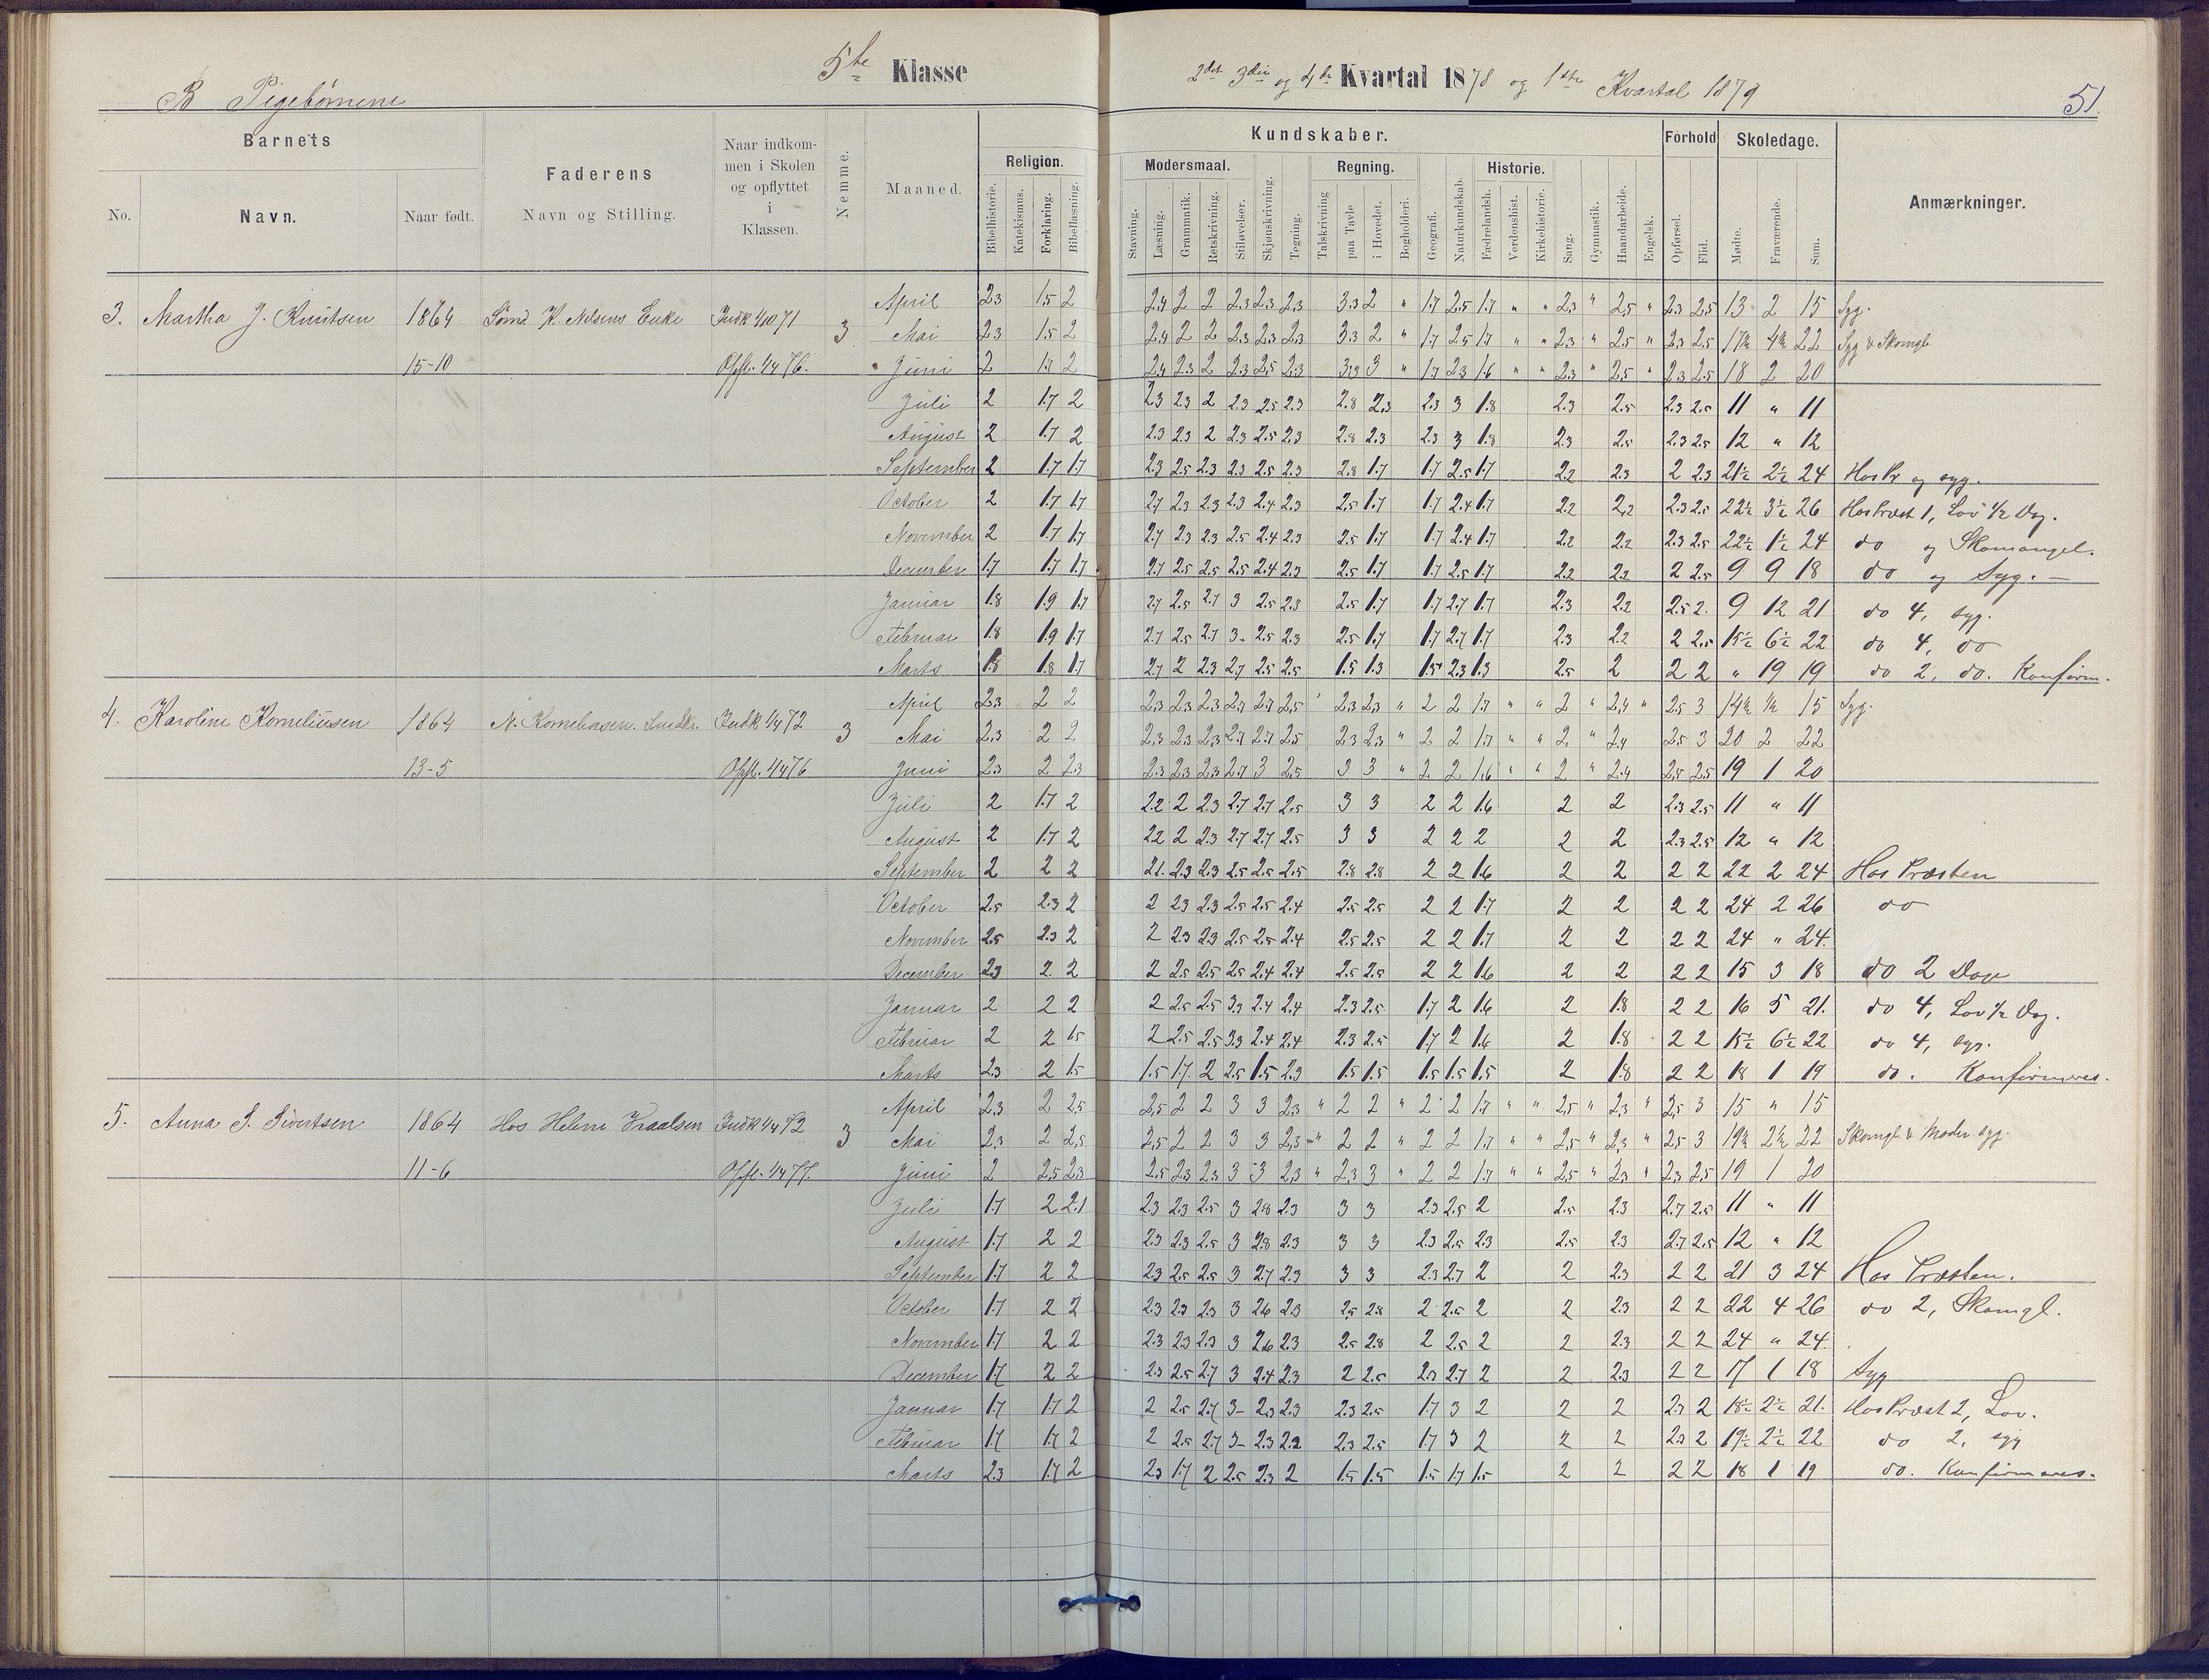 5te Klasse
2det 3die og 4de Kvartal 1878 og 1ste Kvartal 1879
B Pigebørnene
51.
Barnets
No.
Navn.
Naar født.
Faderens
Navn og Stilling.
Naar indkom-
men i Skolen
og opflyttet
i
Klassen.
Nemme.
Maaned.
Religion.
Bibelhistorie.
Katekismus.
Forklaring.
Bibellæsning.
Kundskaber.
Modersmaal.
Stavning.
Læsning.
Grammatik.
Retskrivning.
Stiløvelser.
Skjønskrivning.
Tegning.
Regning.
Talskrivning
paa Tavle
i Hovedet.
Bogholderi.
Geografi.
Naturkundskab.
Historie.
Fædrelandsh.
Verdenshist.
Kirkehistorie.
Sang.
Gymnastik.
Haandarbeide.
Engelsk.
Forhold
Opførsel.
Flid.
Skoledage.
Mødte.
Fraværende.
Sum.
Anmærkninger.
3. Martha J. Knutsen 1864 Sømd. K. Nilsens Enke
15-10
3
April 2.3 1.5 2 2.4 2 2 2.3 2.3 2.3 3.3 2 " 1.7 2.5 1.7 " " 2.3 " 2.5 " 2.3 2.5 13 2 15 Syg.
Mai 2.3 1.5 2 2.4 2 2 2.3 2.3 2.3 3.3 2 " 1.7 2.5 1.7 " " 2.3 " 2.5 " 2.3 2.5 17½ 4½ 22 Syg & Skomgl
Juni 2 1.7 2 2.4 2.3 2 2.3 2.5 2.3 3 " 1.7 2.3 1.6 " " 2.3 " 2.5 " 2.3 2.5 18 2 20
Juli 2 1.7 2 2.3 2.3 2 2.3 2.5 2.3 2.8 2.3 2.3 3 1.8 2.3 2.5 2.3 2.5 11 " 11
August 2 1.7 2 2.3 2.3 2 2.3 2.5 2.3 2.8 2.3 2.3 3 1.8 2.3 2.5 2.3 2.5 12 " 12
September 2 1.7 1.7 2.3 2.5 2.3 2.3 2.5 2.3 2.8 1.7 1.7 2.5 1.7 2.2 2.3 2 2.3 21½ 2½ 24 Hos Pr og syg.
October 2 1.7 1.7 2.7 2.3 2.3 2.3 2.4 2.3 2.5 1.7 1.7 2.4 1.7 2.2 2.2 2.3 2.5 22½ 3½ 26 Hos Præst 1, Lov ½ Dag.
November 2 1.7 1.7 2.7 2.3 2.3 2.5 2.4 2.3 2.5 1.7 1.7 2.4 1.7 2.2 2.2 2.3 2.5 22½ 1½ 24 do og Skomangel.
December 1.7 1.7 1.7 2.7 2.5 2.5 2.5 2.4 2.3 2.5 1.7 1.7 2.5 1.7 2.2 2.2 2 2.5 9 9 18 do og Syg. —
Januar 1.8 1.9 1.7 2.7 2.5 2.7 3 2.5 2.3 2.5 1.7 1.7 2.7 1.7 2.3 2.2 2.5 2. 9 12 21 do 4, syg.
Februar 1.8 1.9 1.7 2.7 2.5 2.7 3- 2.5 2.3 2.5 1.7 1.7 2.7 1.7 2.3 2.2 2 2.5 15½ 6½ 22 do 4, do
Marts 1.8 1.8 1.7 2.7 2 2.3 2.7 2.5 2.5 1.5 1.3 1.5 2.3 1.3 2.5 2 2 2 " 19 19 do 2, do. Konfirm.
4. Karoline Korneliusen 1864 N. Korneliusen. Smdkr. Indk 1/4 72
13-5 Opfl. 1/4 76
3
April 2.3 2 2 2.3 2.3 2.3 2.7 2.7 2.5 ' 2.3 2.3 " 2 2 1.7 " " 2 " 2.4 " 2.5 3 14½ ½ 15 Syg.
Mai 2.3 2 2 2.3 2.3 2.3 2.7 2.7 2.5 2.3 2.3 " 2 2 1.7 " " 2 " 2.4 2.5 3 20 2 22
Juni 2.3 2 2.3 2.3 2.3 2.3 2.7 3 2.5 3 3 " 2 2 1.6 " " 2 " 2.4 2.5 2.5 19 1 20
Juli 2 1.7 2 2.2 2 2.3 2.7 2.7 2.5 3 3 2 2 1.6 2 2 2.3 2.5 11 " 11
August 2 1.7 2 2.2 2 2.3 2.7 2.7 2.5 3 3 2 2 2 2 2 2.3 2.5 12 " 12
September 2 2 2 2.1. 2.3 2.3 2.5 2.5 2.5 2.8 2.8 2 2 1.6 2 2 2 2 22 2 24 Hos Præsten
October 2.5 2.3 2 2 2.3 2.3 2.5 2.5 2.4 2.5 2.5 2 2 1.7 2 2 2 2 24 2 26 do
November 2.5 2.3 2 2 2.3 2.3 2.5 2.5 2.4 2.5 2.5 2 2 1.7 2 2 2 2 24 " 24.
December 2.3 2. 2 2 2.5 2.5 2.5 2.4 2.4 2.5 2.5 2 2 1.6 2 2 2 2 15 3 18 do 2 Dage
Januar 2 2 2 2 2.5 2.5 3.3 2.4 2.4 2.3 2.5 1.7 2 1.6 2 1.8 2 2 16 5 21. do 4, Lov ½ Dag.
Februar 2 2 1.5 2 2.5 2.5 3.3 2.4 2.4 2.3 2.5 1.7 2 1.6 2 1.8 2 2 15½ 6½ 22 do 4, syg.
Marts 2.3 2 1.5 1.5 1.7. 2 2.5 1.5 2.3 1.5 1.5 1.5 1.5 1.5 2 1.8 2 2 18 1 19 do. Konfirmeres.
5. Anna S. Sivertsen 1864 Hos Helene Traalsen Indk 1/4 72
11-6 Opfl. 1/4 77.
3
April 2.3 2 2.5 2.5 2 2 3 3 2.3 " 2 2 " 2 2 1.7 " " 2.5 " 2.3 " 2.5 3 15 " 15
Mai 2.3 2 2.5 2.5 2 2 3 3 2.3 " 2 2 " 2 2 1.7 " " 2.5 " 2.3 " 2.5 3 19½ 2½ 22 Skomgl. & Moder syg.
Juni 2 2.5 2.3 2.5 2.3 2.3 3 3 2.3 " 2.3 3 " 2 2 1.7 " " 2.5 " 2.3 " 2.3 2.5 19 1 20
Juli 1.7 2 2.1 2.3 2.3 2.5 3 2.8 2.3 3 3 2.3 2.5 2 2.5 2.3 2.7 2.5 11 " 11
August 1.7 2 2 2.3 2.3 2.5 3 2.8 2.3 3 3 2.3 2.5 2.3 2.5 2.3 2.7 2.5 12 " 12
September 1.7 2 2 2.3 2.5 2.5 3 2.7 2.3 3 3 2.3 2.7 2 2 2.3 2 2 21 3 24 Hos Præsten.
October 1.7 2 2 2.3 2.3 2.3 3 2.6 2.3 2.5 2.8 2 2.5 2 2 2.3 2 2 22 4 26 do 2, Skomgl.
November 1.7 2 2 2.3 2.3 2.3 3 2.6 2.3 2.5 2.8 2 2.5 2 2 2.3 2 2 24 " 24.
December 1.7 2 2 2.3 2.5 2.7 3 2.4 2.3 2 2.5 2.3 2.7 2 2 2.3 2 2 17 1 18 Syg
Januar 1.7 1.7 2 2 2.5 2.7 3- 2.3 2.3 2.3 2.5 1.7 3 2 2 2 2.3 2 18½ 2½ 21. Hos Præst 2, Lov.
Februar 1.7 1.7 2 2 2.5 2.7 3- 2.3 2.2 2.3 2.5 1.7 3 2 2 2 2.3 2 19½ 2½ 22 do 2, syg
Marts 2.3 1.7 2 2.3 1.7 2 2.5 2.3 2 1.5 1.5 1.5 1.7 1.5 2 2 2 2 18 1 19 do. Konfirmeres.